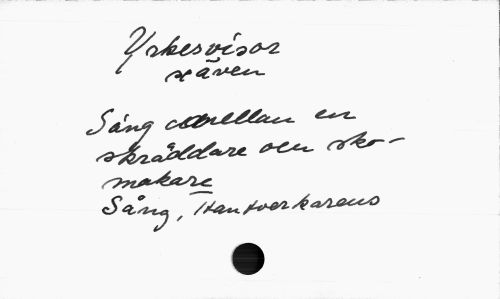 Yrkesvisor
se även
Sång emellan en
skräddare och sko-
makare
Sång, Hantverkarens